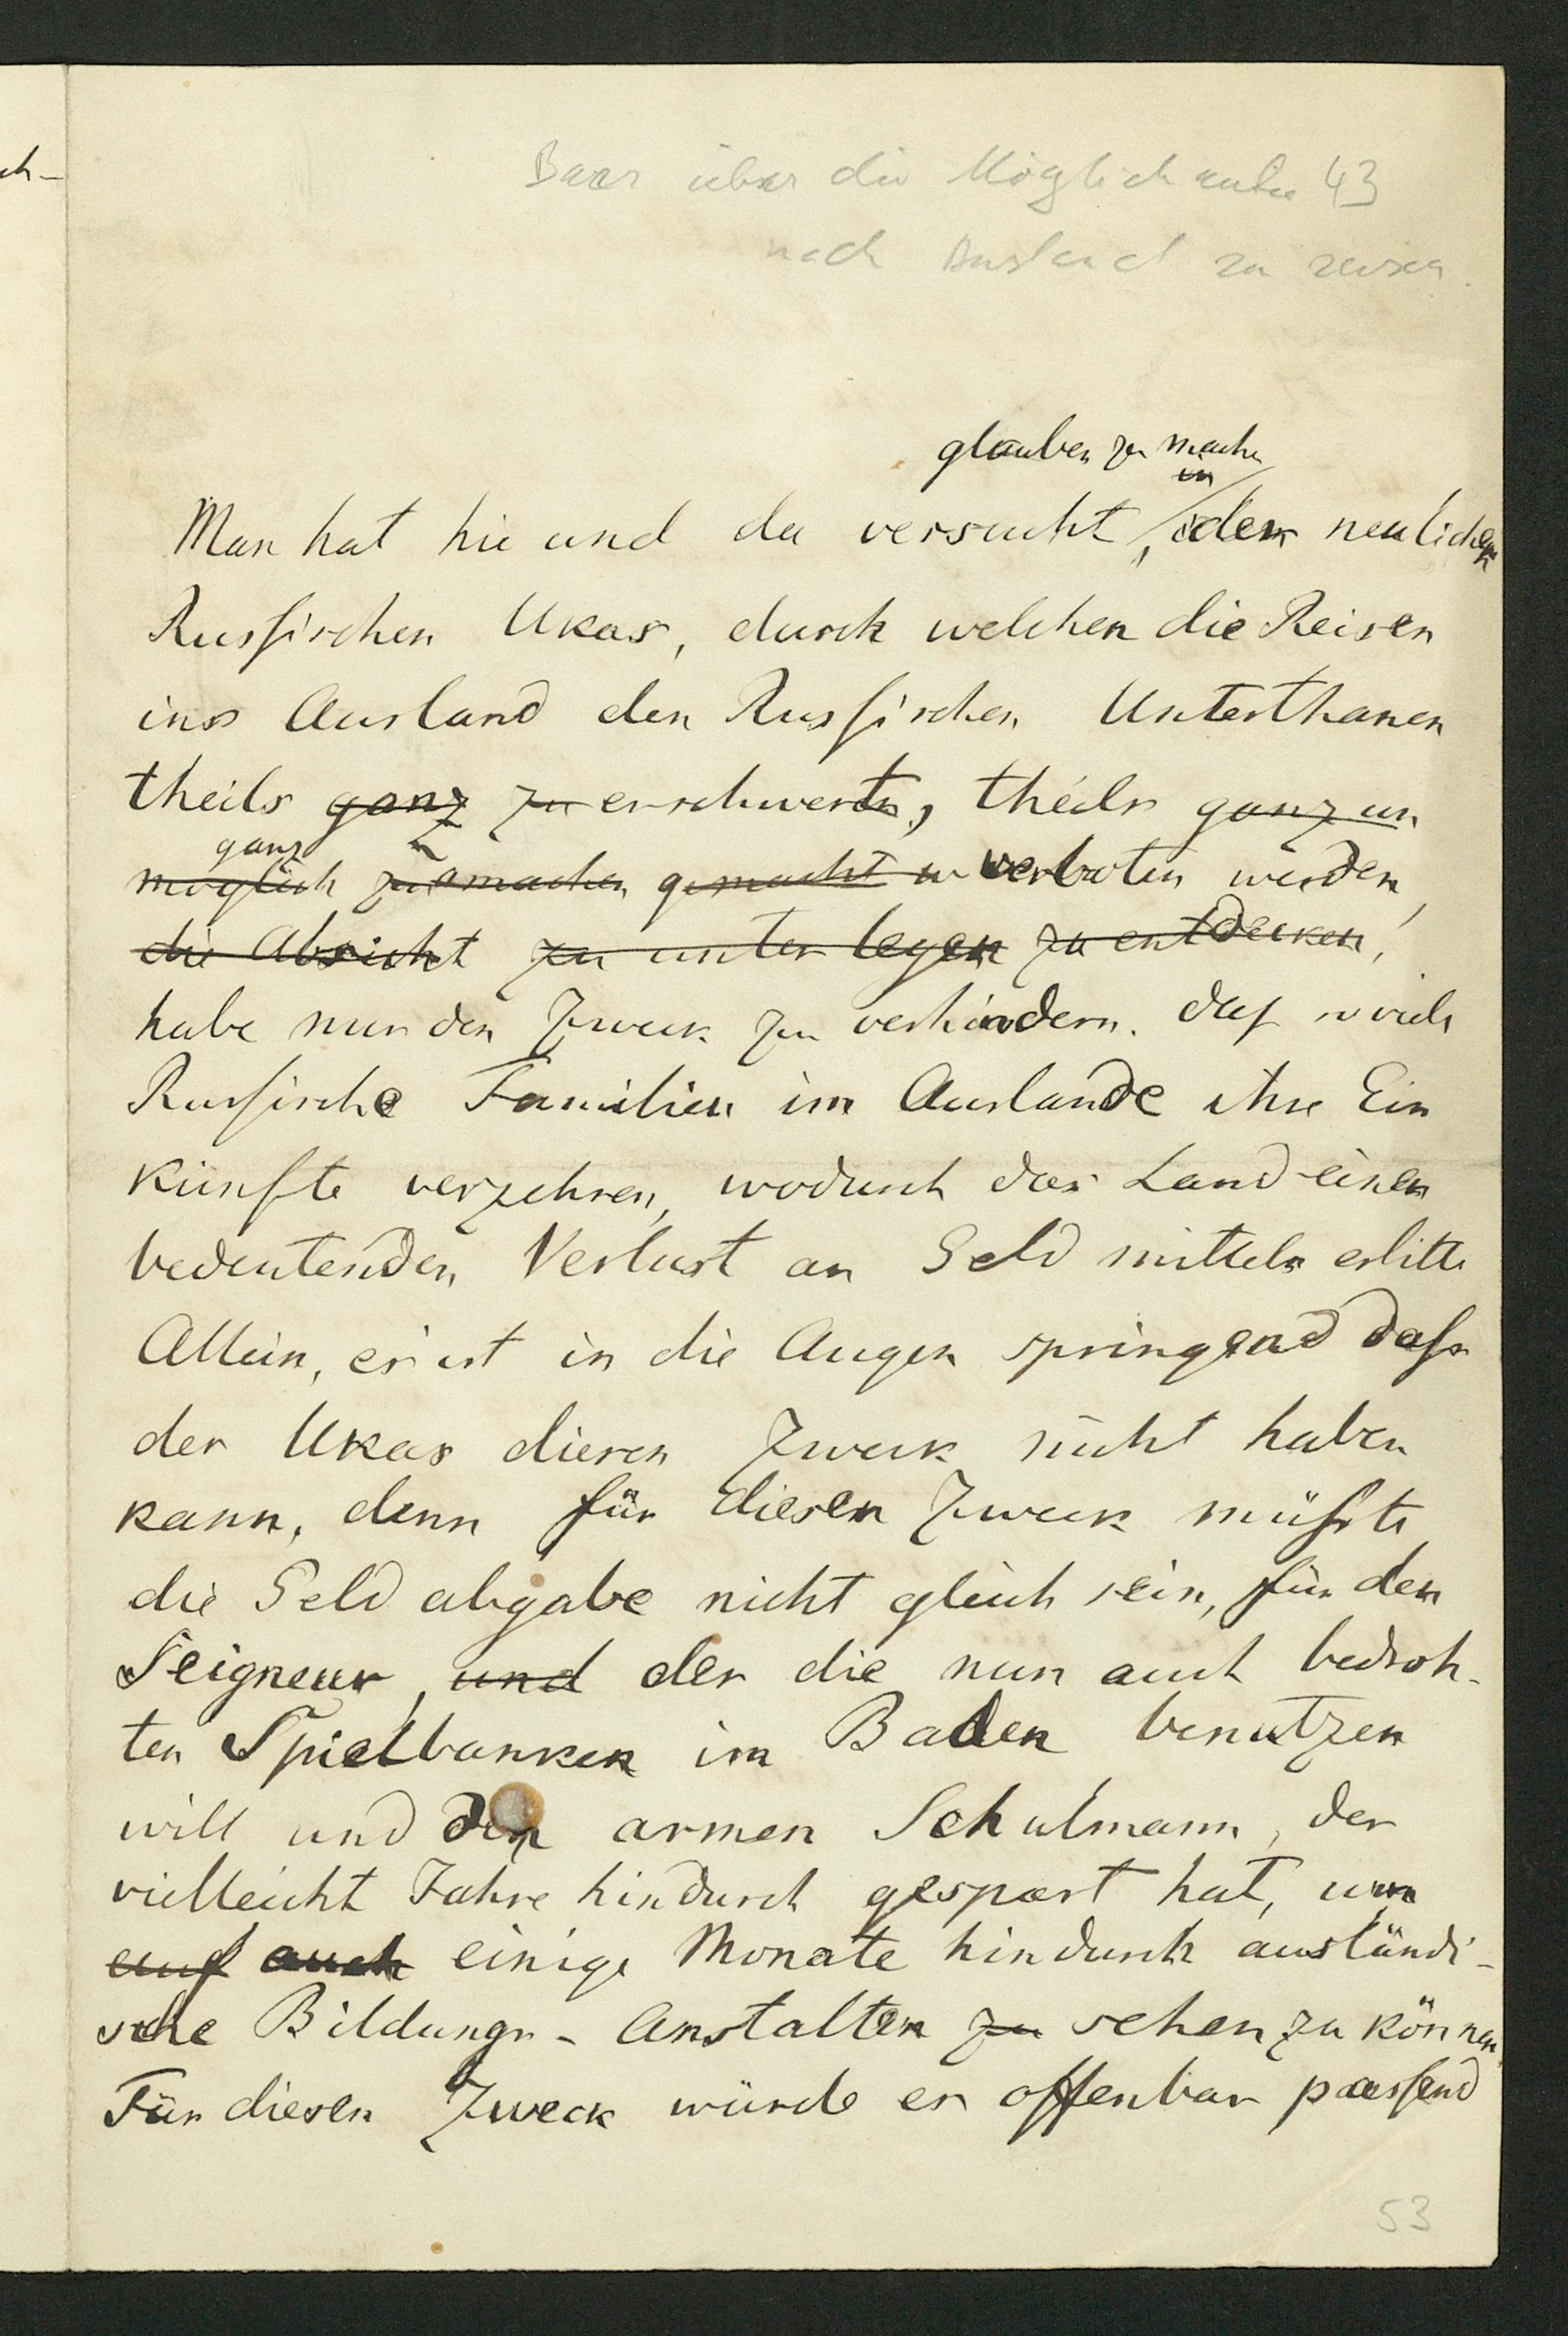 ch-
Baer über die Möglichkeiten 43
nach Ausland zu reisen
glauben zu machen
Man hat hie und da versucht, der neulichen
Russischen Ukas, durch welchen die Reisen
ins Ausland den Russischen Unterthanen
theils ganz zu erschwert, theils ganz un
ganz
möglich zu machen gemacht verboten werden,
die Absicht zu unter legen zu entdecken,
habe nur den Zweck zu verhindern. daß so viele
Russische Familien im Auslande ihre Ein
künfte verzehren, wodurch das Land einen
bedeutenden Verlust an Geld mitteln erlitte
Allein, es ist in die Augen springend dass
der Ukas diesen Zweck nicht haben
kann, denn für diesen Zweck müsste
die Geld abgabe nicht gleich sein, für den
Seigneur, und der die nun auch bedroh-
ten Spielbanken im Baden benutzen
will und den armen Schulmann, der
vielleicht Jahre hindurch gespart hat, um
auf auch einige Monate hindurch ausländi-
sche Bildungs-Anstalten zu sehen zu können.
Für diesen Zweck würde es offenbar passend
53